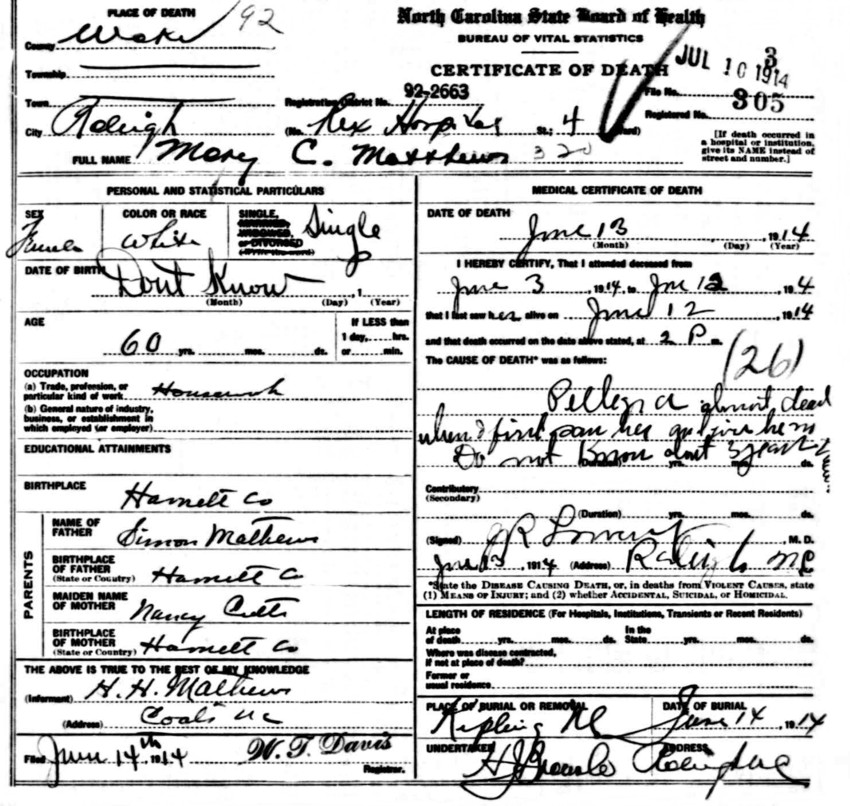 PLACE OF DEATH
92
North Carolina State Board of Health
BUREAU OF VITAL STATISTICS
CERTIFICATE OF DEATH
County Wake
JUL 10 1914
3
Township
92-2663
File No.
Town
Registration District No.
Registered No. 305
City Raleigh
(No. Rex Hospital St.; 4 Ward)
[If death occurred in a hospital or institution, give its NAME instead of street and number.]
FULL NAME Mary C. Matthews 320
PERSONAL AND STATISTICAL PARTICULARS
SEX
COLOR OR RACE White
SINGLE, MARRIED, WIDOWED, or DIVORCED Single
DATE OF BIRTH Dont Know, 1
(Month) (Day) (Year)
AGE
60 yrs. mos. ds.
If LESS than
1 day, hrs.
or min.
OCCUPATION
(a) Trade, profession, or
particular kind of work Housework
(b) General nature of industry,
business, or establishment in
which employed (or employer)
EDUCATIONAL ATTAINMENTS
BIRTHPLACE Harnett Co
PARENTS
NAME OF
FATHER Simon Mathews
BIRTHPLACE
OF FATHER
(State or Country) Harnett C
MAIDEN NAME
OF MOTHER Nancy Cutts
BIRTHPLACE
OF MOTHER
(State or Country) Harnett Co
THE ABOVE IS TRUE TO THE BEST OF MY KNOWLEDGE
(Informant) H. H. Mathews
(Address) Coats NC
Filed June 14th 1914 W. T. Davis
Registrar.
MEDICAL CERTIFICATE OF DEATH
DATE OF DEATH
June 13, 1914
(Month) (Day) (Year)
I HEREBY CERTIFY, That I attended deceased from
June 3, 1914, to June 12, 1914
that I last saw her alive on June 12, 1914
and that death occurred on the date above stated, at 2 P m.
The CAUSE OF DEATH* was as follows:
(26)
Pellegra almost dead
when I first saw her
Do not Know about 3 years
(Duration) yrs. mos. ds.
Contributory
(Secondary)
(Duration) yrs. mos. ds.
(Signed) J R , M. D.
June 13, 1914 (Address) Raleigh NC
*State the DISEASE CAUSING DEATH, or, in deaths from VIOLENT CAUSES, state
(1) MEANS OF INJURY; and (2) whether ACCIDENTAL, SUICIDAL, or HOMICIDAL.
LENGTH OF RESIDENCE (For Hospitals, Institutions, Transients or Recent Residents)
At place
of death yrs. mos. ds.
In the
State yrs. mos. ds.
Where was disease contracted,
if not at place of death?
Former or
usual residence
PLACE OF BURIAL OR REMOVAL
Kipling NC
DATE OF BURIAL
June 14, 1914
UNDERTAKER
H J
ADDRESS
Raleigh NC